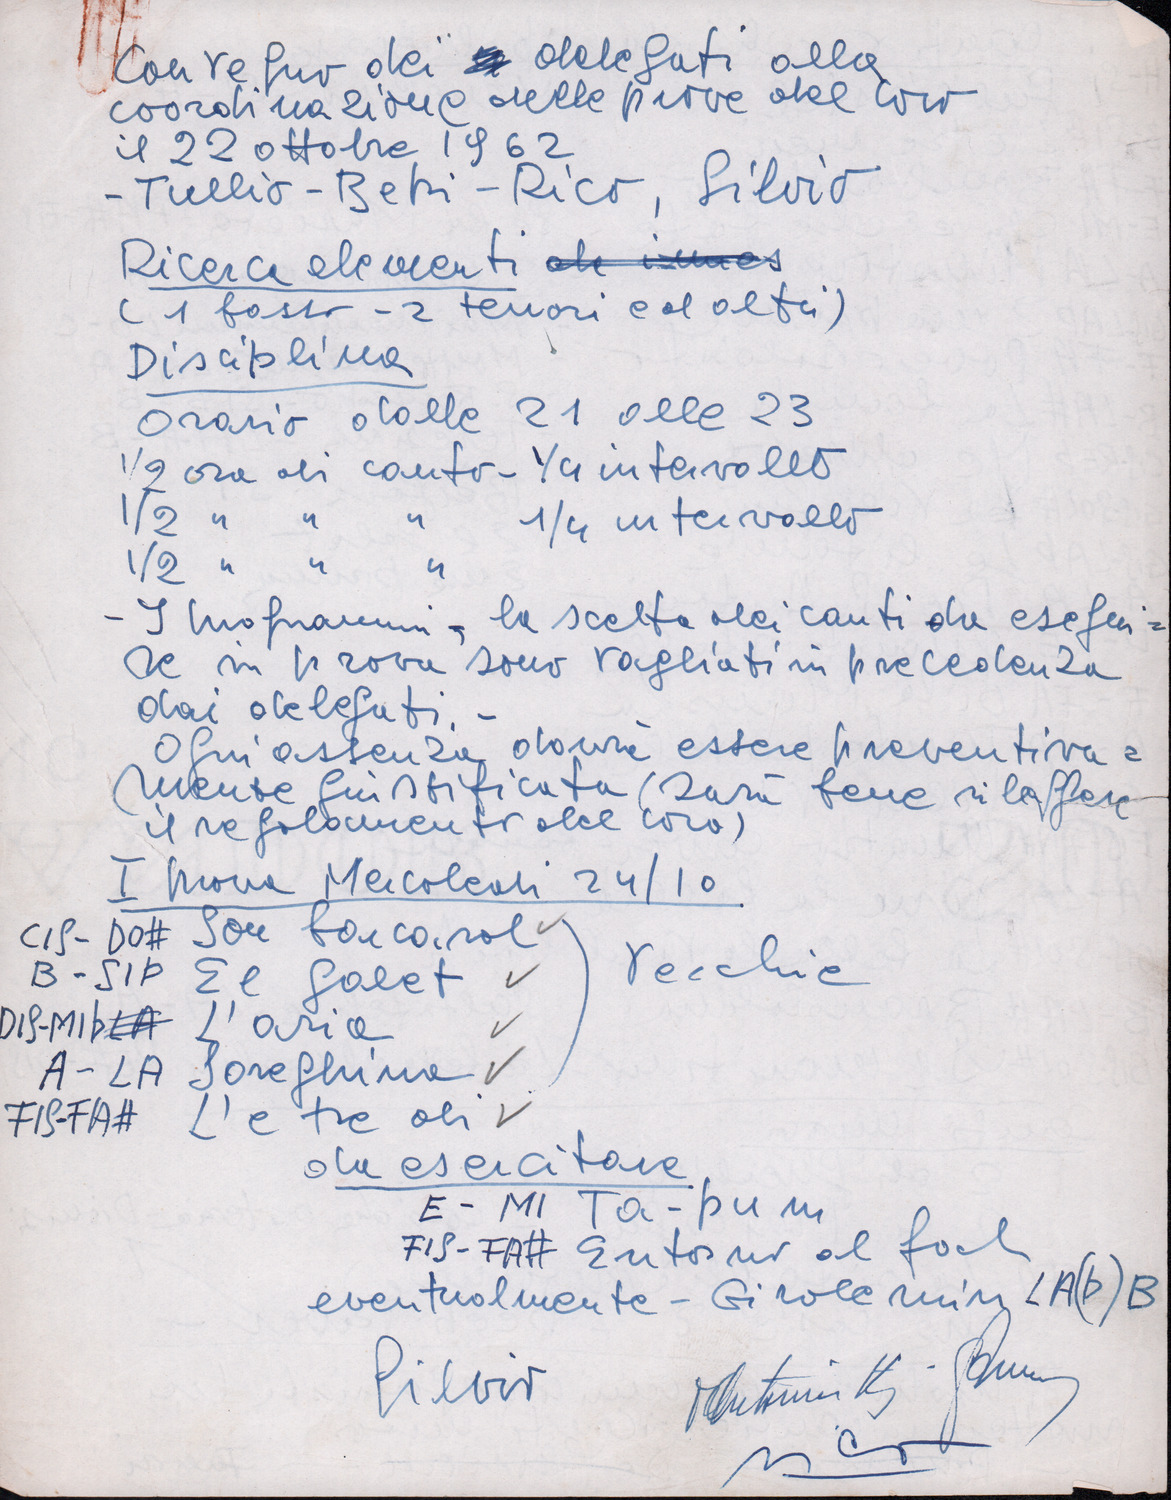 Convegno dei delegati alla
coordinazione delle prove del coro
il 22 ottobre 1962
- Tullio - Betti - Rico, Silvio
Ricerca elementi
(1 basso - 2 tenori ed altri)
Disciplina
Orario dalle 21 alle 23
1/2 ora di canto - 1/4 intervallo
1/2 " " " 1/4 intervallo
1/2 " " "
- I programmi, la scelta dei canti da esegui=
re in prova sono vagliati in precedenza
dai delegati. -
Ogni assenza dovrà essere preventiva=
mente giustificata (sarà bene rileggere
il regolamento del coro)
I prova Mercoledì 24/10
CIS - DO# Son barcarol ✓
B - SIb El galet ✓ Vecchie
DIS-MIb L'aria ✓
A - LA Soreghina ✓
FIS-FA# L'e tre dì ✓
da esercitare
E - MI Ta-pum
FIS - FA# Entorno al foch
eventualmente - Girolemin LA(b) B
Silvio
Rico